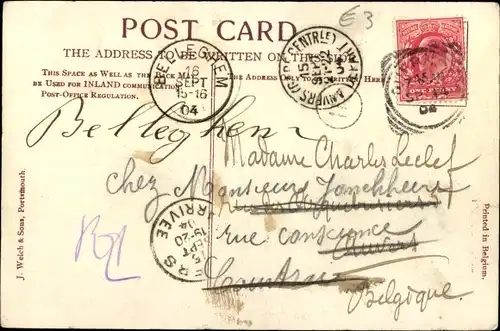 £3
POST CARD
THE ADDRESS TO BE WRITTEN ON THIS SIDE
THIS SPACE AS WELL AS THE BACK MAY
BE USED FOR INLAND COMMUNICATION
POST-OFFICE REGULATION.
THE ADDRESS ONLY TO HERE
16
SEPT
15-16
04
ANVERS (GARE CENTRALE)
15
SEPT
ONE PENNY
Belleghem
Madame Charles Leclef
chez Monsieur Jonckheere
rue conscience
Anvers
Courtrai
Belgique.
ARRIVEE
SEPT
04
J. Welch & Sons, Portsmouth.
Printed in Belgium.